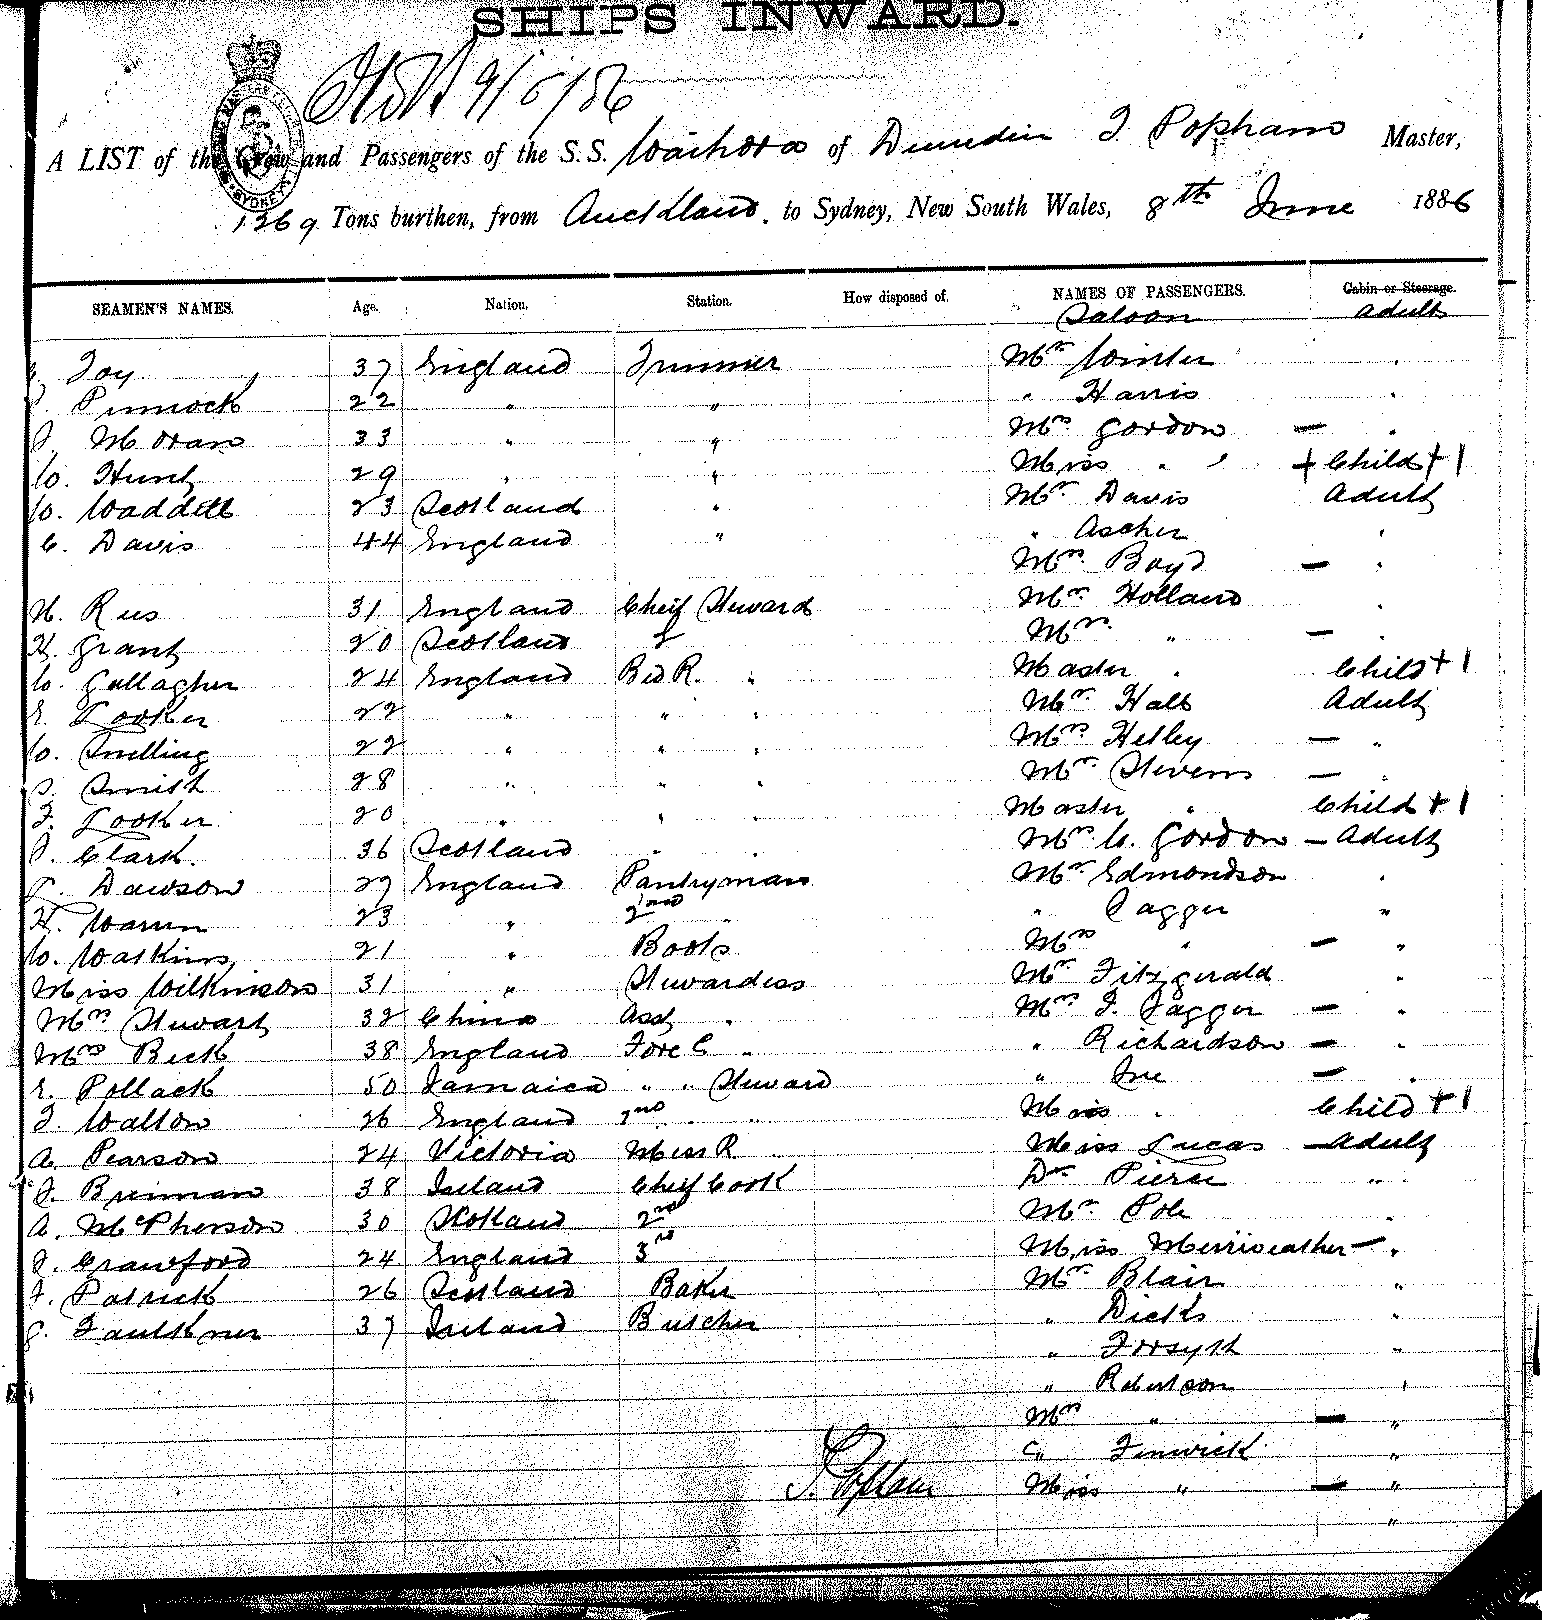 SHIPS INWARD.
A LIST of the Crew and Passengers of the S.S. Waihora of Dunedin J Popham Master,
1269 Tons burthen, from Auckland. to Sydney, New South Wales, 8th June 1886
SEAMEN'S NAMES. Age. Nation. Station. How disposed of. NAMES OF PASSENGERS. Cabin or Steerage.
Saloon Adult
Joy 37 England Trimmer Mr Winter "
Pinnock 22 " " " Harris "
J. Moran 33 " " Mrs Gordon — "
W. Hunt 29 " " Miss " + Child + 1
W. Waddell 23 Scotland " Mr Davis Adult
C. Davis 44 England " " Ascher "
Mrs Boyd — "
H. Rees 31 England Cheif Steward Mr Holland "
H. Grant 20 Scotland 2 Mrs " — "
W. Gallagher 24 England Bed R. " Master " Child + 1
E. Looker 22 " " " Mr Hall Adult
W. Snelling 22 " " " Mrs Helley — "
S. Smith 28 " " " Mrs Stevens — "
F. Looker 20 " " " Master " Child + 1
J. Clark. 36 Scotland " " Mrs W. Gordon — Adult
Dawson 27 England Pantryman Mr Edmondson "
H. Warren 23 " 2nd " " Jagger "
W. Watkins 21 " Boots Mrs " — "
Miss Wilkinson 31 " Stewardess Mr Fitzgerald "
Mrs Stewart 32 China Asst " Mrs F. Jagger — "
Mrs Beck 38 England Fore C " " Richardson — "
E. Pollack 50 Jamaica " " Steward " Ine — "
J. Walton 26 England 2nd " " Miss " Child + 1
A. Pearson 24 Victoria Mess R " Miss Lucas — Adult
J. Brennan 38 Ireland Cheif Cook Dr Pierce "
A. McPherson 30 Scotland 2nd Mr Pole "
J. Crawford 24 England 3rd Miss Merriweather — "
J. Patrick 26 Scotland Baker Mr Blair "
G. Faulkner 37 Ireland Butcher " Dicks "
" Forsyth "
" Robertson "
Mrs " — "
" Fenwick "
J. Popham Miss " — "
"